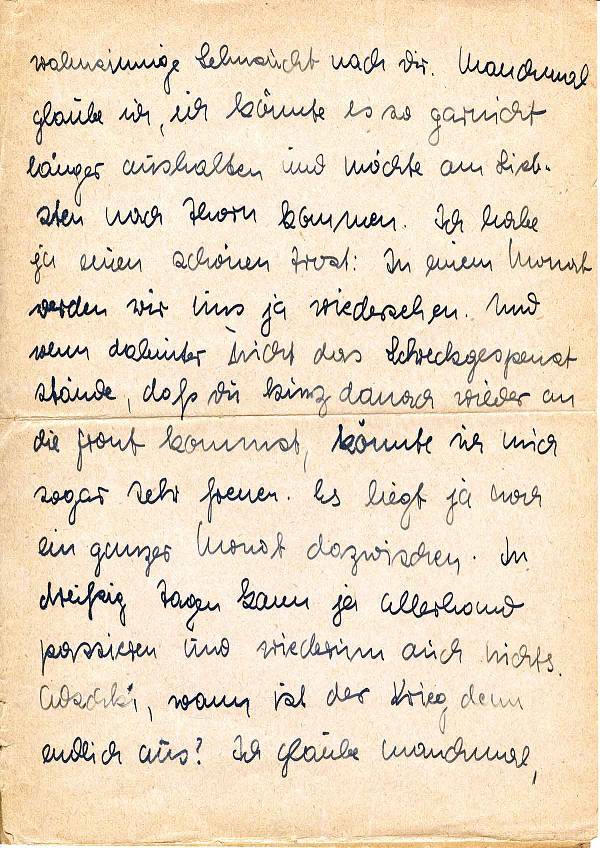 wahnsinnige Sehnsucht nach Dir. Manchmal
glaube ich, ich könnte es so garnicht
länger aushalten und möchte am Lieb-
sten nach Thorn kommen. Ich habe
ja einen schönen Trost: In einem Monat
werden wir uns ja wiedersehen. Und
wenn dahinter nicht das Schreckgespenst
stände, daß Du kurz danach wieder an
die Front kommst, könnte ich mich
sogar sehr freuen. Es liegt ja noch
ein ganzer Monat dazwischen. In
dreißig Tagen kann ja allerhand
passieren und wiederum auch nichts.
wann ist der Krieg denn
endlich aus? Ich glaube manchmal,